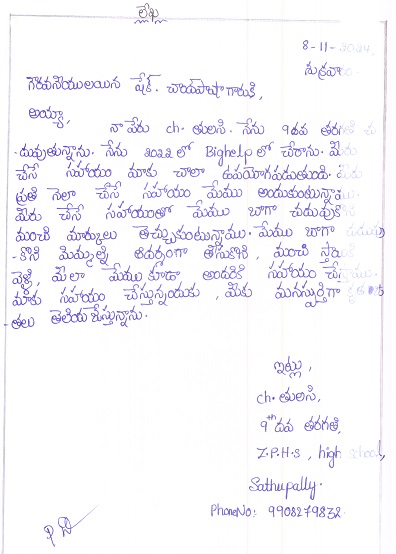 లేఖ
8-11-2024,
శుక్రవారం
గౌరవనీయులయిన షేక్. చాంద్‌పాషా గారుకి,
అయ్యా,
నా పేరు ch. తులసి. నేను 9వ తరగతి చ
-దువుతున్నాను. నేను 2022 లో Bighelp లో చేరాను. మీరు
చేసే సహాయం మాకు చాలా ఉపయోగపడుతుంది. మీరు
ప్రతి నెలా చేసే సహాయం మేము అందుకుంటున్నాము.
మీరు చేసే సహాయంతో మేము బాగా చదువుకొని
మంచి మార్కులు తెచ్చుకుంటున్నాము. మేము బాగా చదువు
-కొని మిమ్మల్ని ఆదర్శంగా తీసుకొని, మంచి స్థాయికి
వెళ్లి, మీలా మేము కూడా అందరికి సహాయం చేస్తాము.
మాకు సహాయం చేస్తున్నందుకు, మీకు మనస్ఫూర్తిగా కృతజ్ఞ
-తలు తెలియచేస్తున్నాను.
ఇట్లు,
ch. తులసి,
9th వ తరగతి,
Z.P.H.S, high school,
Sathupally.
PhoneNo: 9908279832